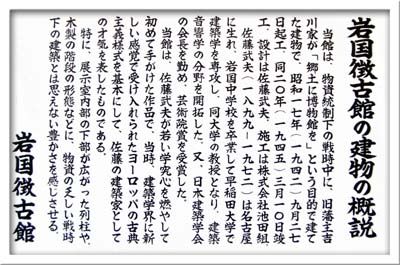 岩国徴古館の建物の概説
当館は、物資統制下の戦時中に、旧藩主吉
川家が「郷土に博物館を」という目的で建て
た建物で、昭和十七年(一九四二)九月二七
日起工、同二〇年(一九四五)三月一〇日竣
工、設計は佐藤武夫、施工は株式会社池田組。
佐藤武夫(一八九九—一九七二)は名古屋
に生れ、岩国中学校を卒業して早稲田大学で
建築学を専攻し、同大学の教授となり、建築
音響学の分野を開拓した。又、日本建築学会
の会長を勤め、芸術院賞を受賞した。
当館は、佐藤武夫が若い学究心を燃やして
初めて手がけた作品で、当時、建築学界に新
しい感覚で受け入れられたヨーロッパの古典
主義様式を基本にして、佐藤の建築家として
の才気を表したものである。
特に、展示室内部の下部が広がった列柱や、
木製の階段の形態などに、物資の乏しい戦時
下の建築とは思えない豊かさを感じさせる。
岩国徴古館